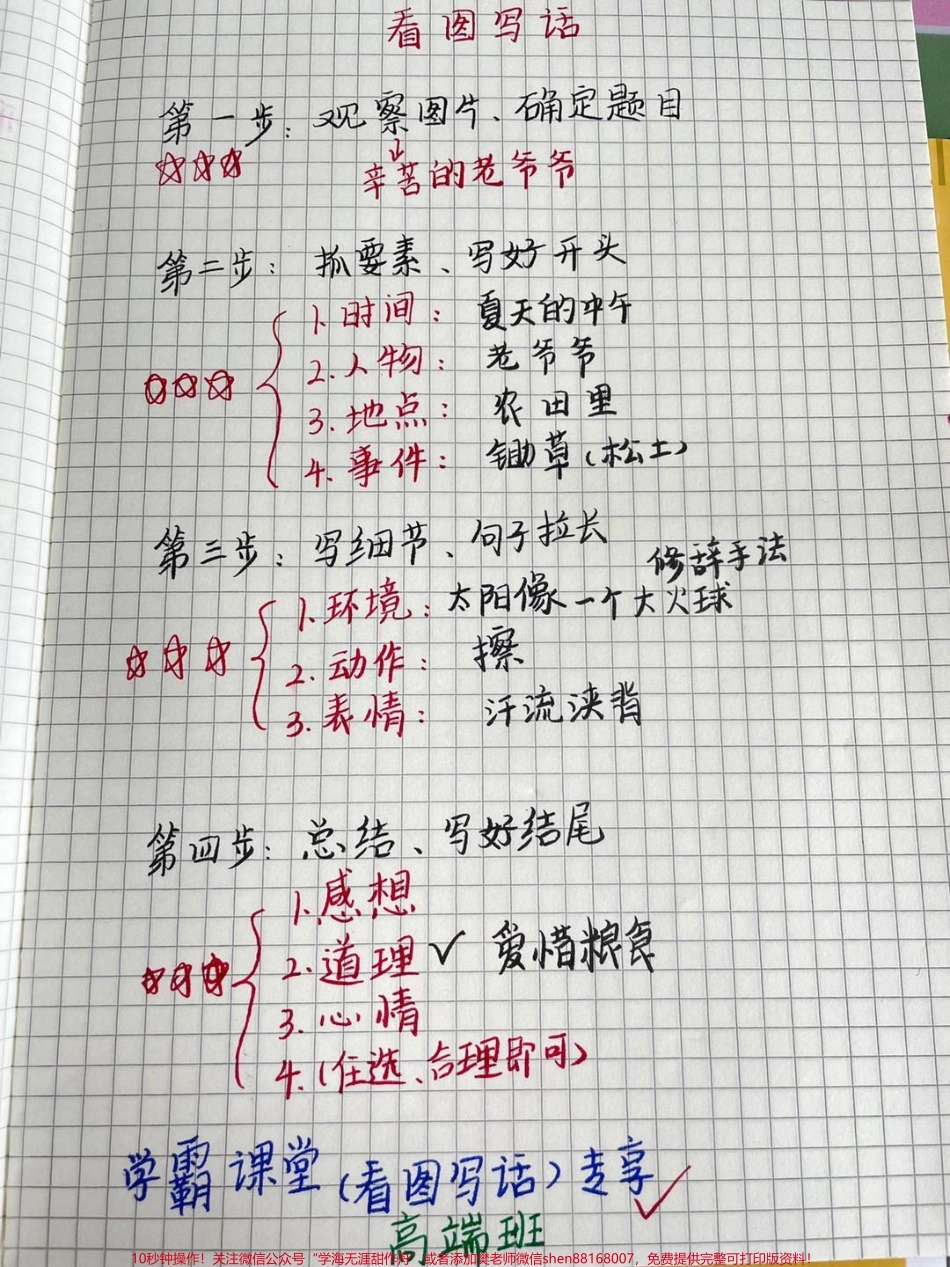 看图写话
第一步：观察图片、确定题目
↓
辛苦的老爷爷
第二步：抓要素、写好开头
1.时间：夏天的中午
2.人物：老爷爷
3.地点：农田里
4.事件：锄草(松土)
第三步：写细节、句子拉长
修辞手法
1.环境：太阳像一个大火球
2.动作：擦
3.表情：汗流浃背
第四步：总结、写好结尾
1.感想
2.道理✓ 爱惜粮食
3.心情
4.(任选、合理即可)
学霸课堂(看图写话)专享
高端班
10秒钟操作！关注微信公众号“学海无涯甜作舟”或者添加樊老师微信shen88168007，免费提供完整可打印版资料！